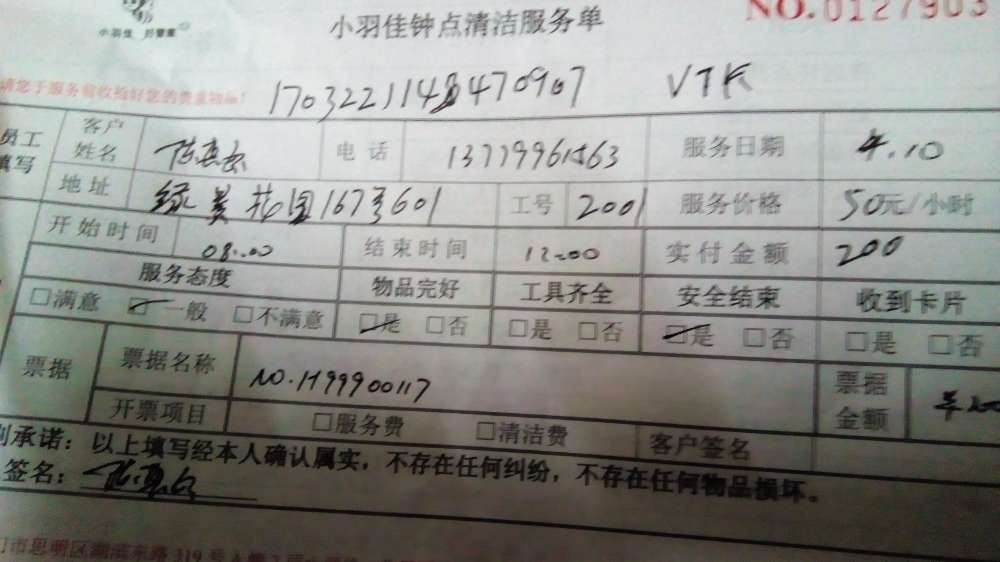 小羽佳 好管家
小羽佳钟点清洁服务单
NO.0127903
请您于服务前收拾好您的贵重物品!
VTK
员工填写 客户姓名 电话 服务日期 4.10
地址 绿景花园167号601 工号 2001 服务价格 50元/小时
开始时间 08:00 结束时间 12:00 实付金额 200
服务态度 物品完好 工具齐全 安全结束 收到卡片
□满意 ☑一般 □不满意 ☑是 □否 □是 □否 ☑是 □否 □是 □否
票据 票据名称 NO.H99900117 票据金额
开票项目 □服务费 □清洁费 客户签名
承诺：以上填写经本人确认属实，不存在任何纠纷，不存在任何物品损坏。
签名：
市思明区湖滨东路319号